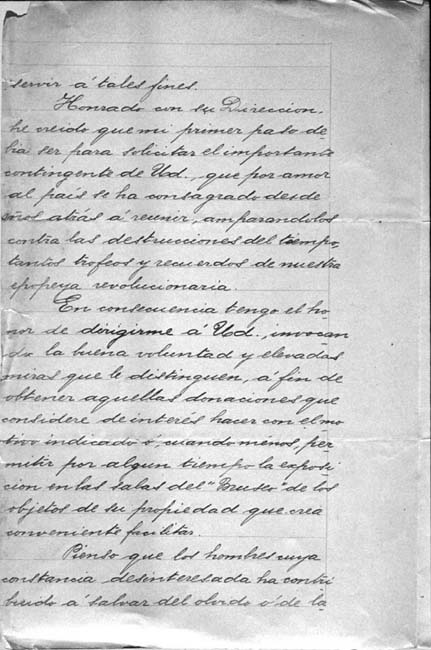 servir á tales fines.
Honrado con su Direccion,
he creido que mi primer paso de-
bia ser para solicitar el importante
contingente de Ud., que por amor
al país se ha consagrado desde
años atrás á reunir, amparandolos
contra las destrucciones del tiempo,
tantos trofeos y recuerdos de nuestra
epopeya revolucionaria.
En consecuencia tengo el ho-
nor de dirigirme á Ud., invocan
do la buena voluntad y elevadas
miras que le distinguen, á fin de
obtener aquellas donaciones que
considere de interés hacer con el mo
tivo indicado ó, cuando menos, per
mitir por algun tiempo la exposi
cion en las salas del "Museo" de los
objetos de su propiedad que crea
conveniente facilitar.
Pienso que los hombres cuya
constancia desinteresada ha contri
buido á salvar del olvido ó de la